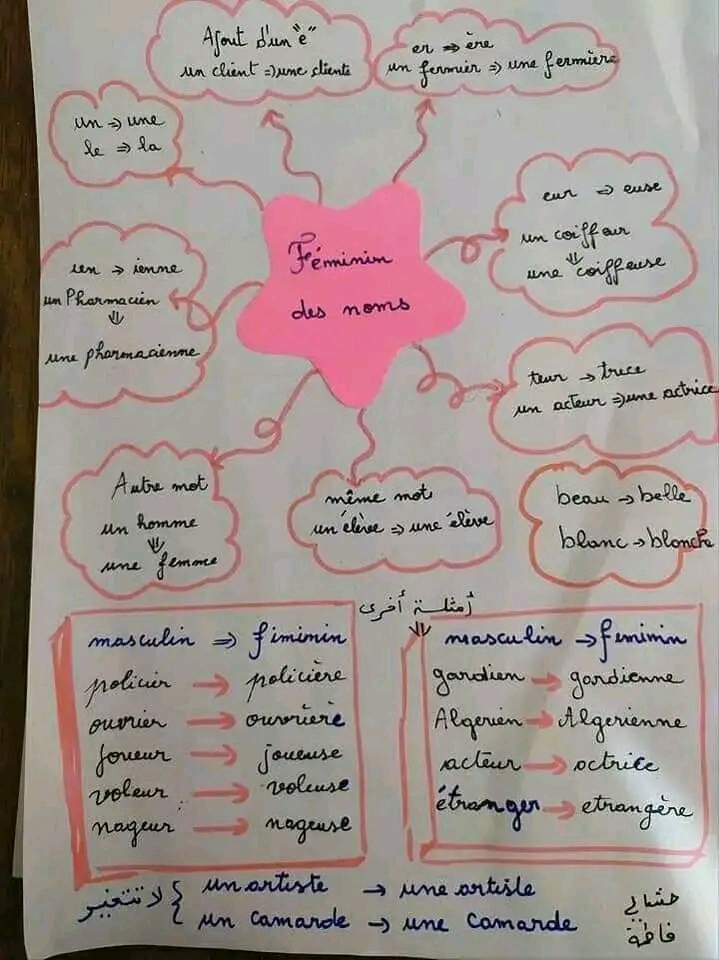 Ajout d'un "e"
un client => une cliente
er => ère
un fermier => une fermière
un => une
le => la
eur => euse
un coiffeur
⇓
une coiffeuse
Féminin
des noms
ien → ienne
un Pharmacien
⇓
une pharmacienne
teur → trice
un acteur => une actrice
Autre mot
un homme
⇓
une femme
même mot
un élève => une élève
beau → belle
blanc → blanche
أمثلة أخرى
masculin => fiminin
policier → policière
ouvrier → ouvrière
joueur → joueuse
voleur → voleuse
nageur → nageuse
masculin → feminin
gardien → gardienne
Algerien → Algerienne
acteur → actrice
étranger → etrangère
لا تتغير { un artiste → une artiste
un camarde → une camarde
حشالي
فاطمة